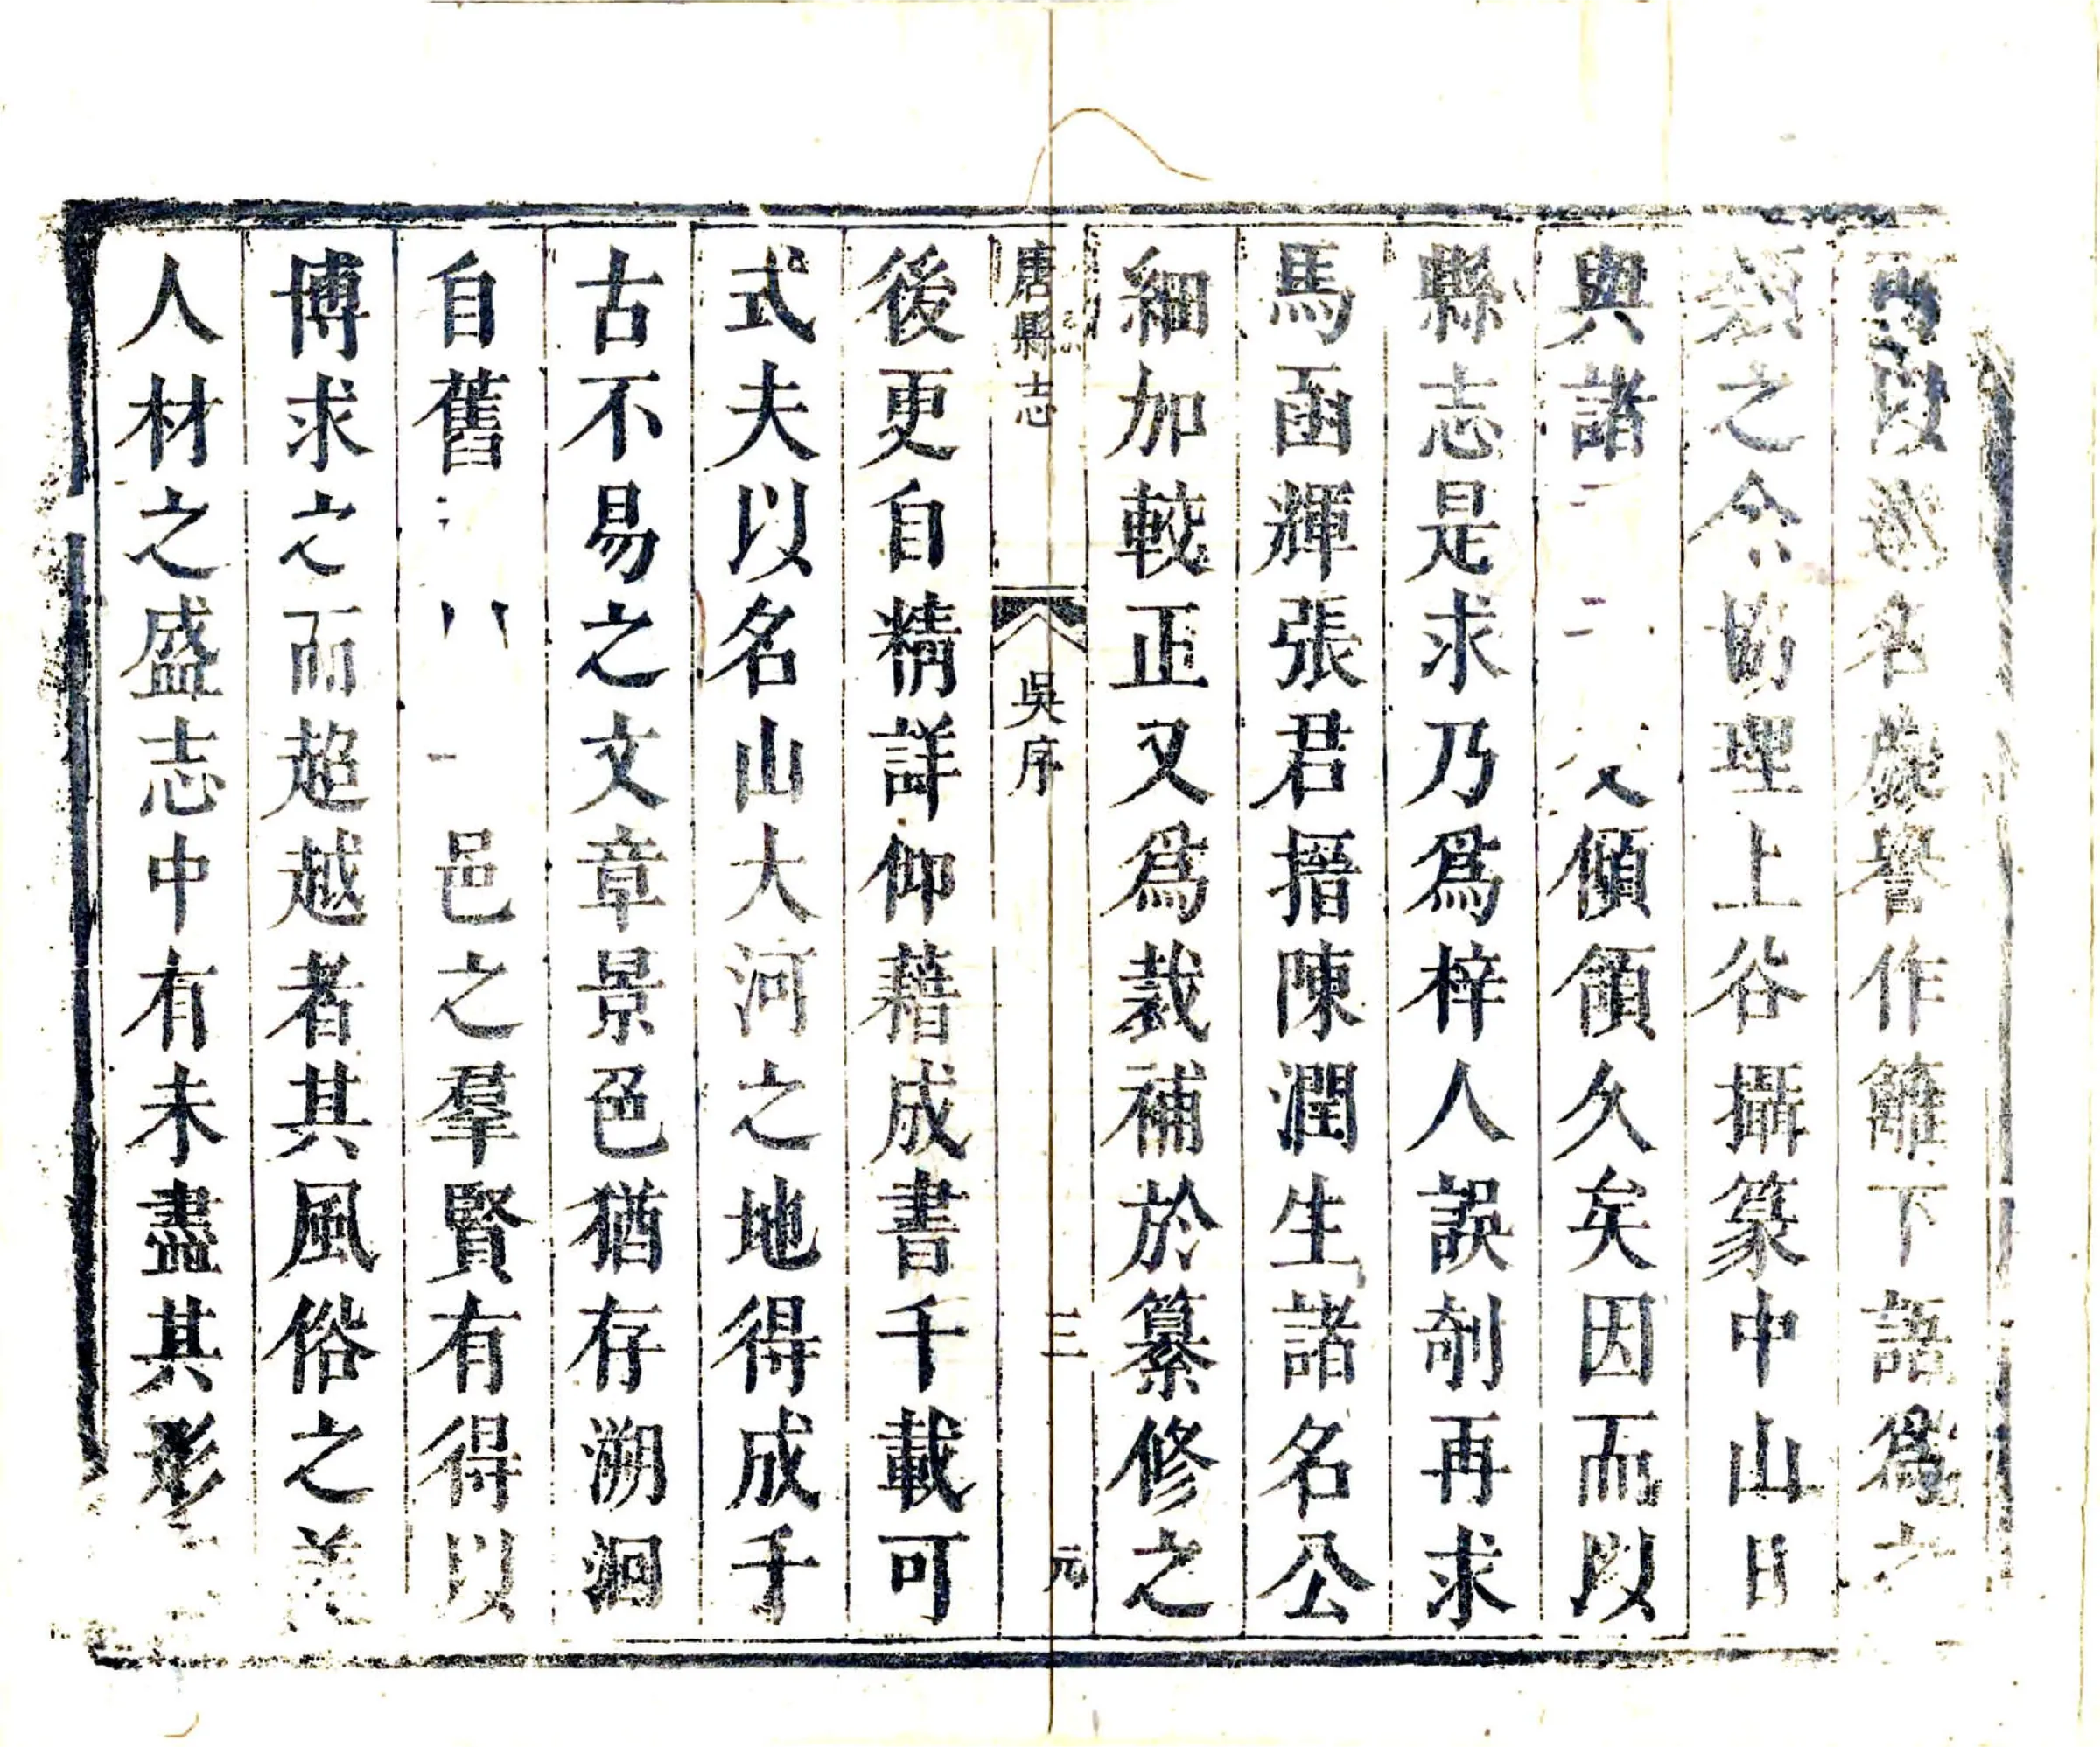 以遊名譽作籬下語爲
類之令協理上谷攝篆中山日
與諸傾領久矣因而以
縣志是求乃爲梓人誤剞再求
馬函輝張君搢陳潤生諸名公
細加較正又爲裁補於纂修之
唐縣志 吳序 三 元
後更自精詳仰藉成書千載可
式夫以名山大河之地得成千
古不易之文章景色猶存溯洄
自舊邑之羣賢有得以
博求之而超越者其風俗之美
人材之盛志中有未盡其形